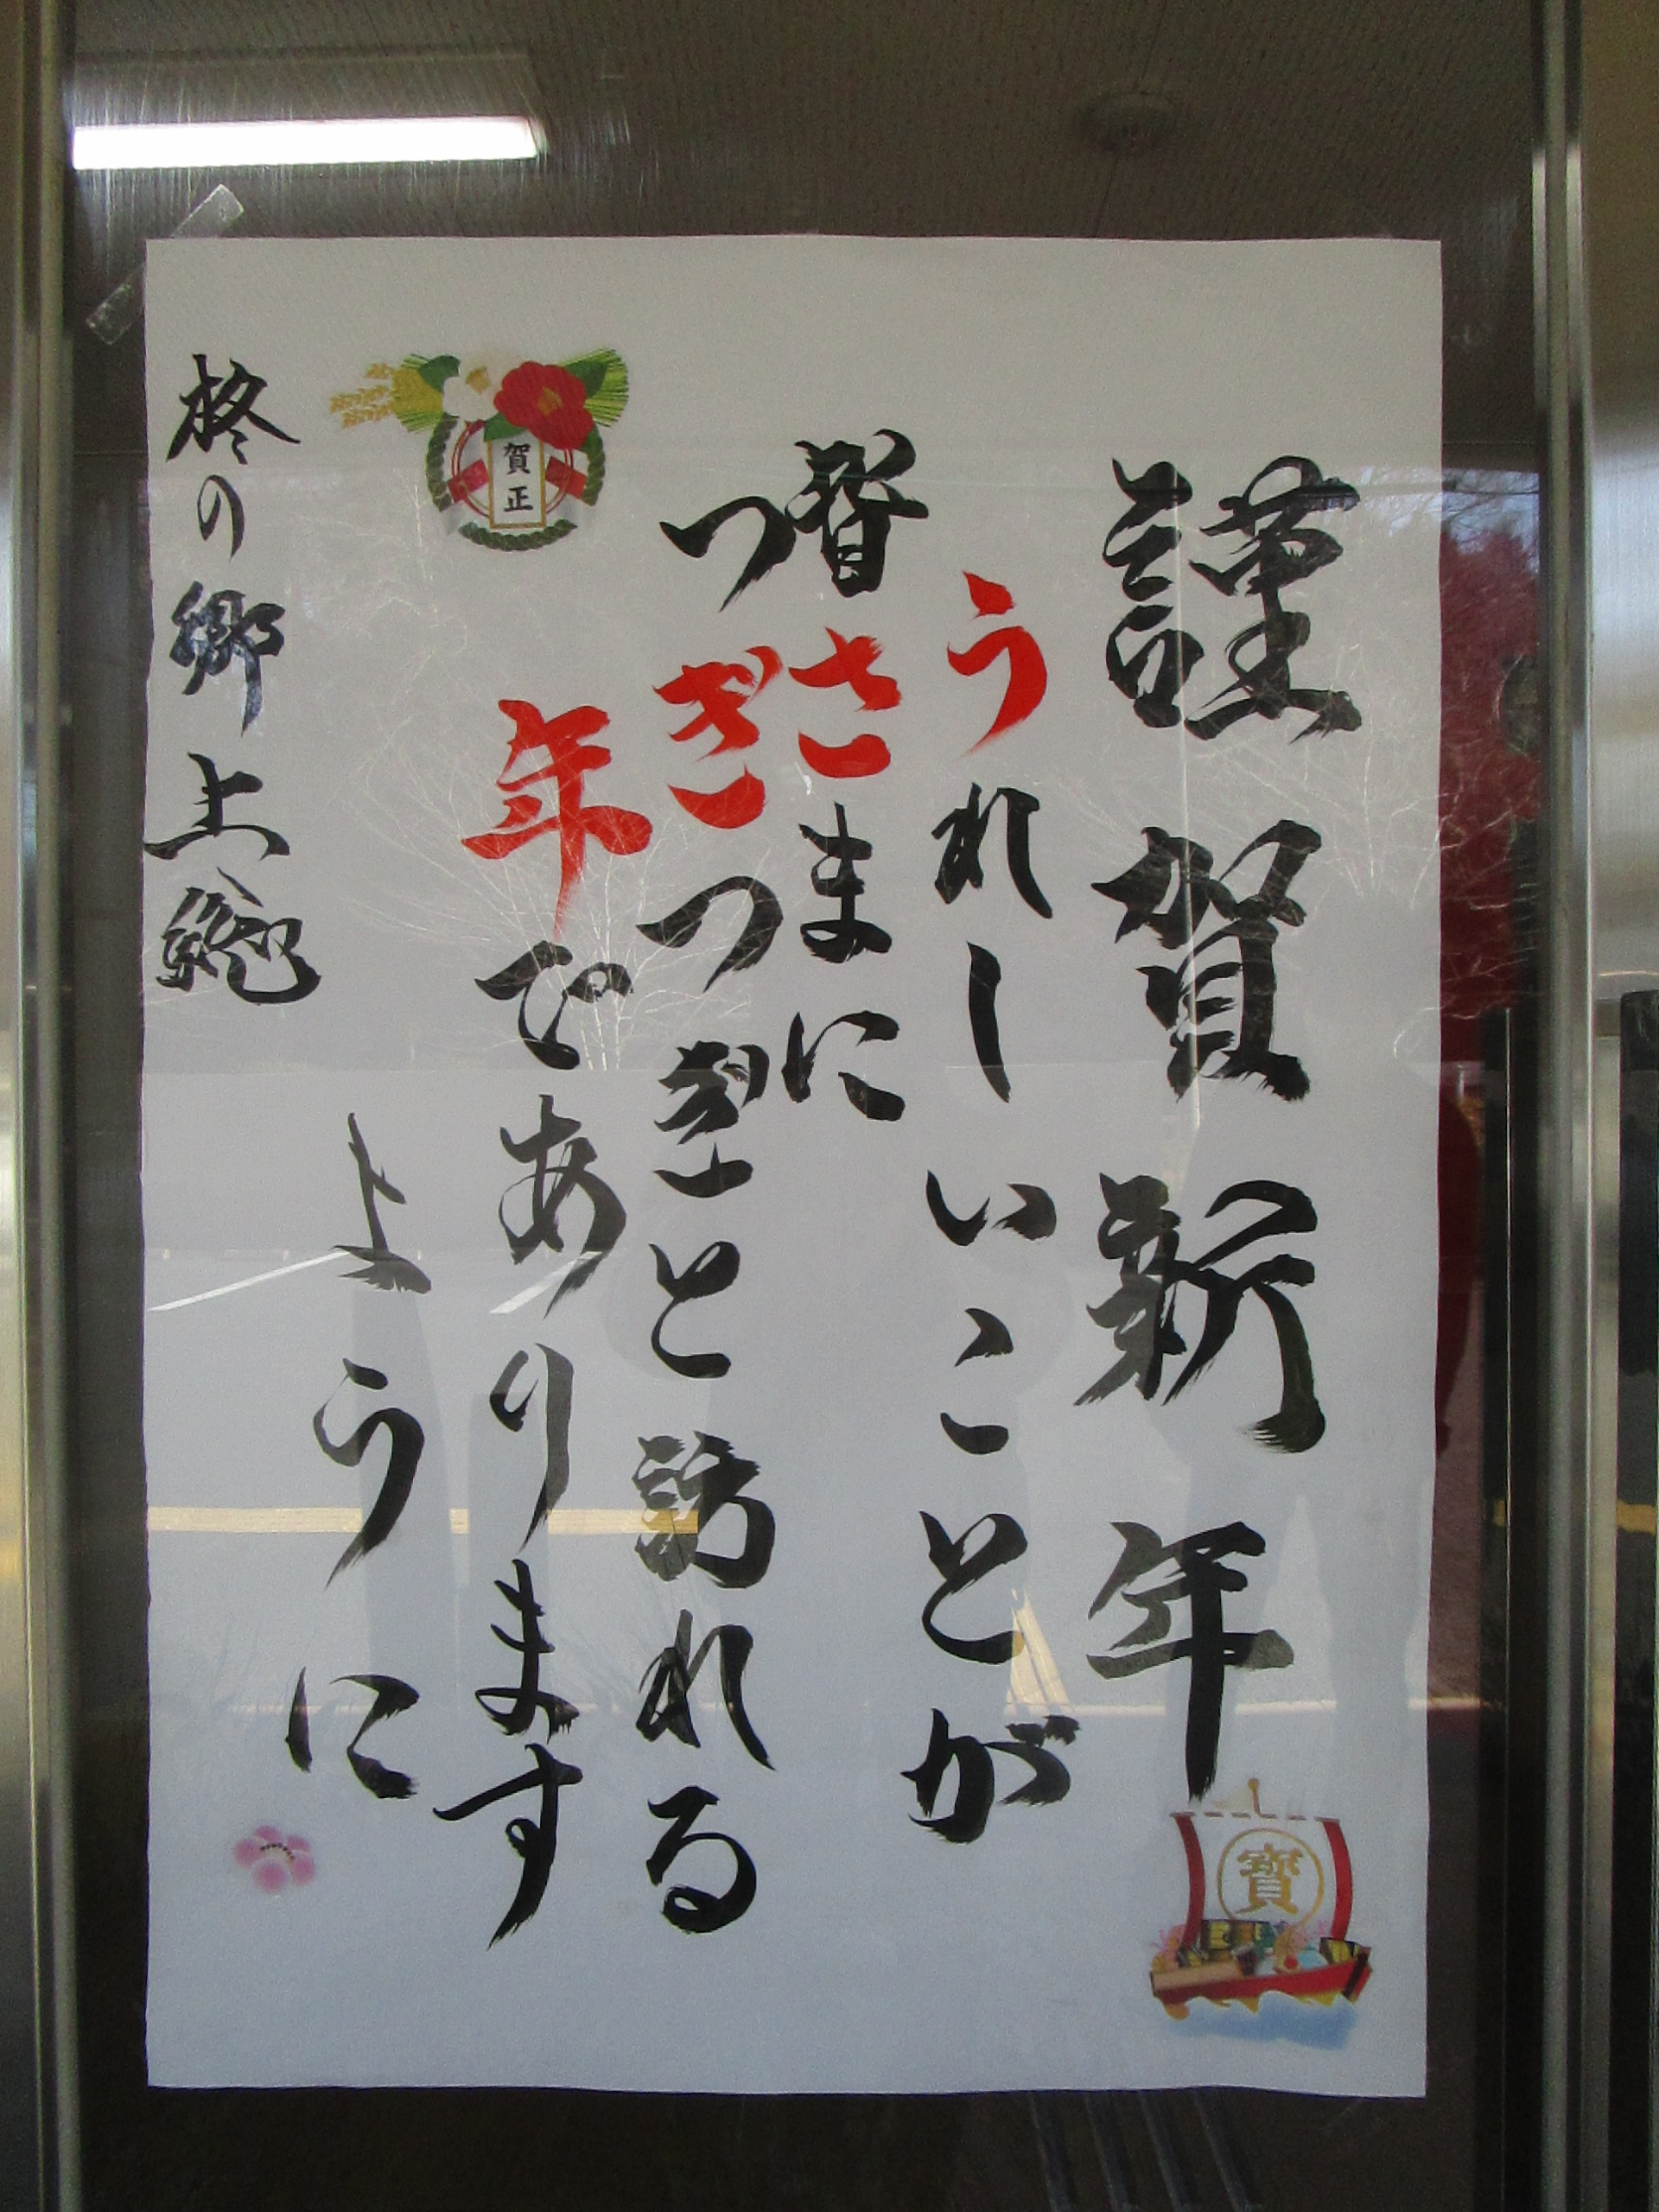 謹賀新年
うれしいことが
皆さまに
つぎつぎと訪れる
年であります
ように
賀正
柊の郷上総
寳